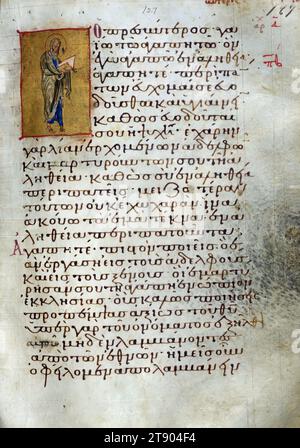 127
127
Ὁ πρεσβύτερος γαΐ
ω τῶ ἀγαπητῶ ὃν
ἐγὼ ἀγαπῶ ἐν ἀληθεί
α ἀγαπητέ· περὶ πάν
των εὔχομαί σε εὐο
δοῦσθαι καὶ ὑγιαίνειν
καθὼς εὐοδοῦται
σου ἡ ψυχή· ἐχάρην
γὰρ λίαν ἐρχομένων ἀδελφῶ
καὶ μαρτυρούντων σου τῆ ἀ
ληθεία· καθὼς σὺ ἐν ἀληθεία
περιπατεῖς· μειζοτέραν
τούτων οὐκ ἔχω χαράν· ἵνα
ἀκούω τὰ ἐμὰ τέκνα ἐν ἀ
ληθεία περιπατοῦντα·
Ἀγαπητέ· πιστὸν ποιεῖς ὃ ἐ
ὰν ἐργάση εἰς τοὺς ἀδελφοὺς
καὶ εἰς τοὺς ξένους· οἳ ἐμαρτύ
ρησάν σου τῆ ἀγάπη ἐνώπιον
ἐκκλησίας· οὓς καλῶς ποιήσεις
προπέμψας ἀξίως τοῦ θῦ·
ὑπὲρ γὰρ τοῦ ὀνόματος ἐξῆλθον
μηδὲν λαμβάνοντες
ἀπὸ τῶν ἐθνῶν· ἡμεῖς οὖν
ὀφείλομεν ἀπολαμβάνειν
alamy
Image ID: 2T904F4
www.alamy.com